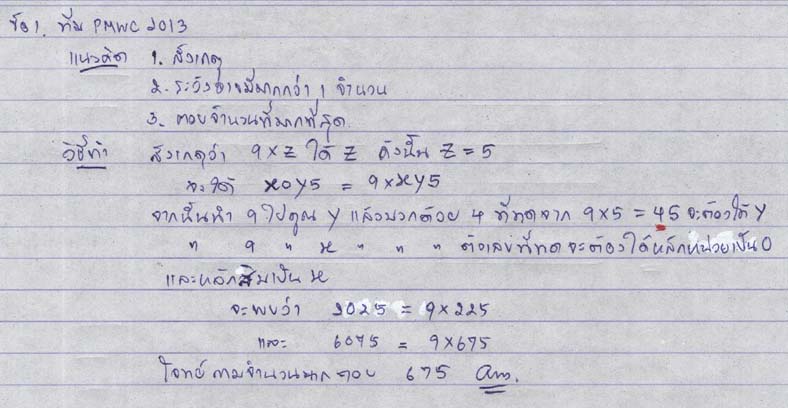 ข้อ 1. ทีม PMWC 2013
แนวคิด 1. สังเกตุ
2. ระวังอาจมีมากกว่า 1 จำนวน
3. ตอบจำนวนที่มากที่สุด
วิธีทำ สังเกตุว่า 9×Z ได้ Z ดังนั้น Z = 5
จะได้ x0y5 = 9×xy5
จากนั้นนำ 9 ไปคูณ y แล้วบวกด้วย 4 ที่ทดจาก 9×5 = 45 จะต้องได้ y
" 9 " x " " " ตัวเลขที่ทดจะต้องได้หลักหน่วยเป็น 0
และหลักสิบเป็น x
จะพบว่า 2025 = 9×225
และ 6075 = 9×675
โจทย์ถามจำนวนมาก ตอบ 675 Ans.